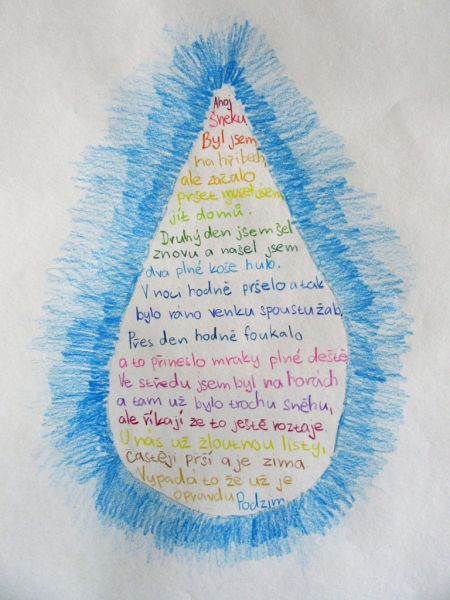 Ahoj
Šneku.
Byl jsem
na hřibech,
ale začalo
pršet musel jsem
jít domů.
Druhý den jsem šel
znovu a našel jsem
dva plné koše hub.
V noci hodně pršelo a tak
bylo ráno venku spoustu žab,
Přes den hodně foukalo
a to přineslo mraky plné deště,
Ve středu jsem byl na horách
a tam už bylo trochu sněhu,
ale říkají že to ještě roztaje
U nás už žloutnou listy,
častěji prší a je zima
Vypadá to že už je
opravdu Podzim